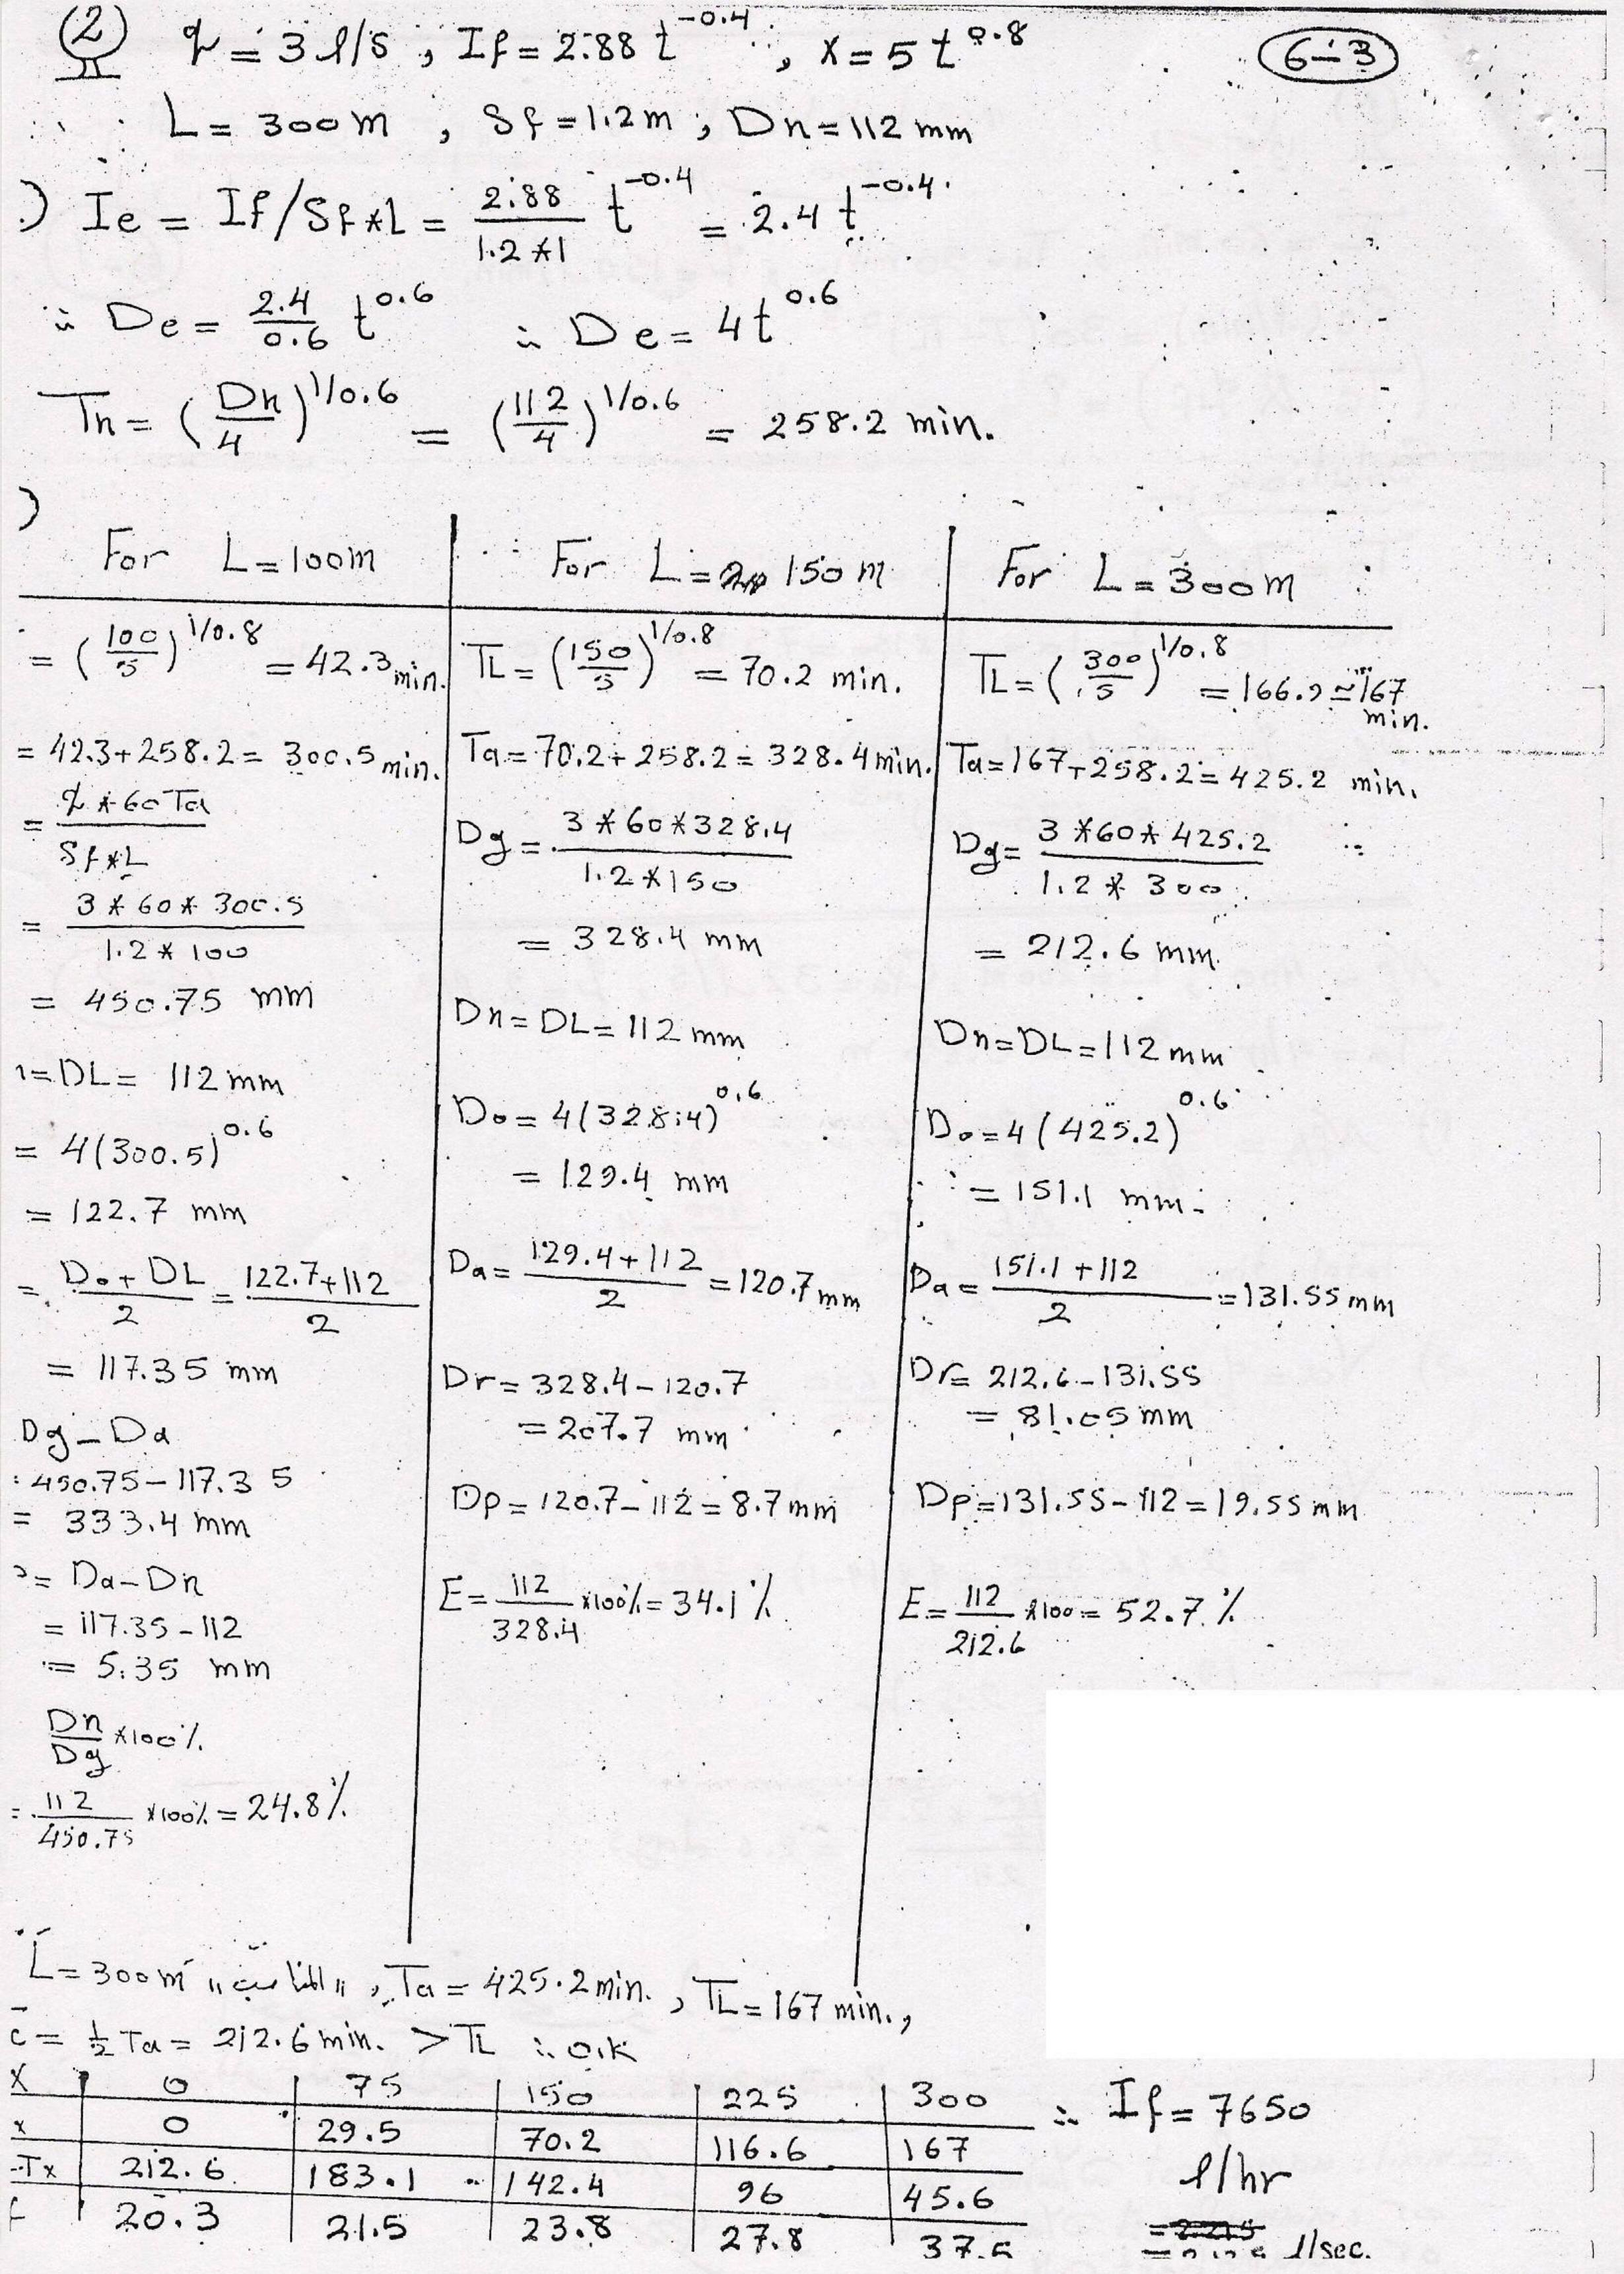 (2) q = 3 l/s ; If = 2.88 t^-0.4 , x = 5 t^0.8 6-3
L = 300 m , Sf = 1.2 m ; Dn = 112 mm
) Ie = If/Sf*L = 2.88/1.2*1 t^-0.4 = 2.4 t^-0.4
∴ De = 2.4/0.6 t^0.6 ∴ De = 4t^0.6
Tn = (Dn/4)^1/0.6 = (112/4)^1/0.6 = 258.2 min.
)
For L = 100m
= (100/5)^1/0.8 = 42.3 min.
= 42.3+258.2 = 300.5 min.
= q*60Ta/Sf*L
= 3*60*300.5/1.2*100
= 450.75 mm
= DL = 112 mm
= 4(300.5)^0.6
= 122.7 mm
= Do+DL/2 = 122.7+112/2
= 117.35 mm
Dg-Da
450.75-117.35
= 333.4 mm
= Da-Dn
= 117.35-112
= 5.35 mm
Dn/Dg *100%
= 112/450.75 *100% = 24.8%
For L = 150 m
TL = (150/5)^1/0.8 = 70.2 min.
Ta = 70.2+258.2 = 328.4 min.
Dg = 3*60*328.4/1.2*150
= 328.4 mm
Dn = DL = 112 mm
Do = 4(328.4)^0.6
= 129.4 mm
Da = 129.4+112/2 = 120.7 mm
Dr = 328.4-120.7
= 207.7 mm
Dp = 120.7-112 = 8.7 mm
E = 112/328.4 *100% = 34.1%
For L = 300m
TL = (300/5)^1/0.8 = 166.9 ≃ 167
min.
Ta = 167+258.2 = 425.2 min.
Dg = 3*60*425.2/1.2*300
= 212.6 mm
Dn = DL = 112 mm
Do = 4(425.2)^0.6
= 151.1 mm
Da = 151.1+112/2 = 131.55 mm
Dr = 212.6-131.55
= 81.05 mm
Dp = 131.55-112 = 19.55 mm
E = 112/212.6 *100 = 52.7%
L = 300m "المناسب" , Ta = 425.2 min. , TL = 167 min. ,
= 1/2 Ta = 212.6 min. > TL ∴ O.K
X 0 75 150 225 300
x 0 29.5 70.2 116.6 167
-Tx 212.6 183.1 142.4 96 45.6
20.3 21.5 23.8 27.8
∴ If = 7650
l/hr
l/sec.